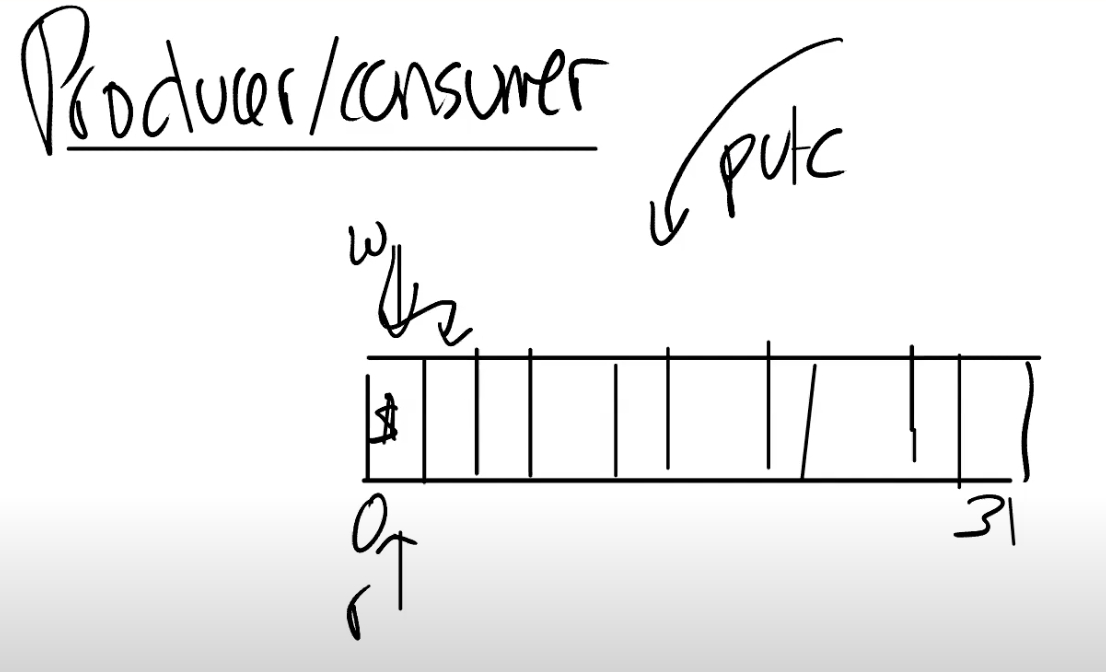 Producer/consumer
putc
w
$
0
31
r